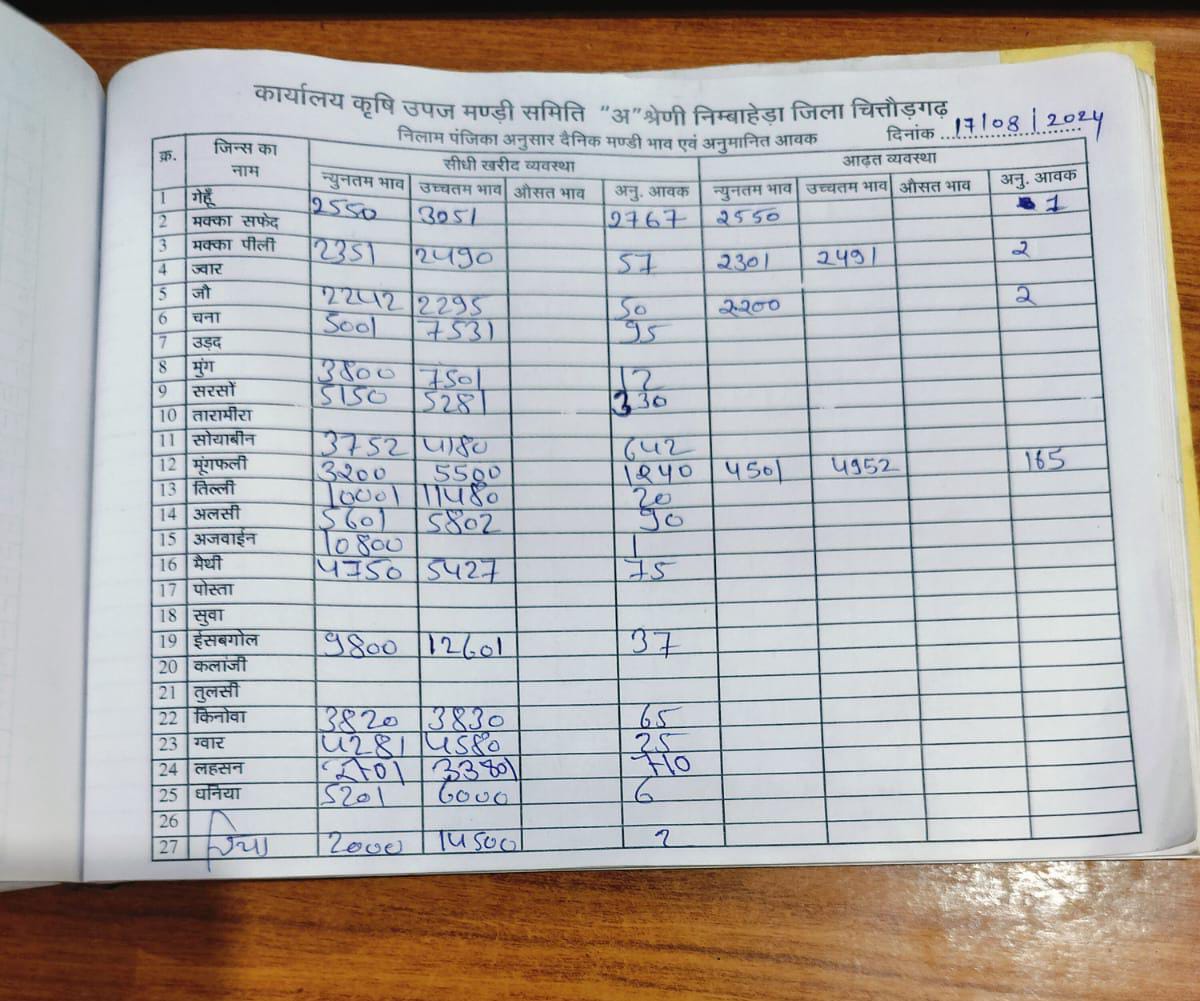 कार्यालय कृषि उपज मण्डी समिति "अ" श्रेणी निम्बाहेड़ा जिला चित्तौड़गढ़
निलाम पंजिका अनुसार दैनिक मण्डी भाव एवं अनुमानित आवक दिनांक 17/08/2024
क्र. जिन्स का नाम सीधी खरीद व्यवस्था आढ़त व्यवस्था
न्युनतम भाव उच्चतम भाव औसत भाव अनु. आवक न्युनतम भाव उच्चतम भाव औसत भाव अनु. आवक
1 गेहूँ 2550 3051 2767 2550 1
2 मक्का सफेद
3 मक्का पीली 2351 2490 57 2301 2491 2
4 ज्वार
5 जौ 2242 2295 50 2200 2
6 चना 5001 7531 95
7 उड़द
8 मुंग 3800 7501 12
9 सरसों 5150 5281 330
10 तारामीरा
11 सोयाबीन 3752 4180 642
12 मूंगफली 3200 5500 1240 4501 4952 165
13 तिल्ली 10001 11480 20
14 अलसी 5601 5802 90
15 अजवाईन 10800 1
16 मैथी 4750 5427 75
17 पोस्ता
18 सुवा
19 ईसबगोल 9800 12601 37
20 कलांजी
21 तुलसी
22 किनोवा 3820 3830 65
23 ग्वार 4281 4580 25
24 लहसन 710
25 धनिया 5201 6000 6
26
27 चिया 2000 14500 2